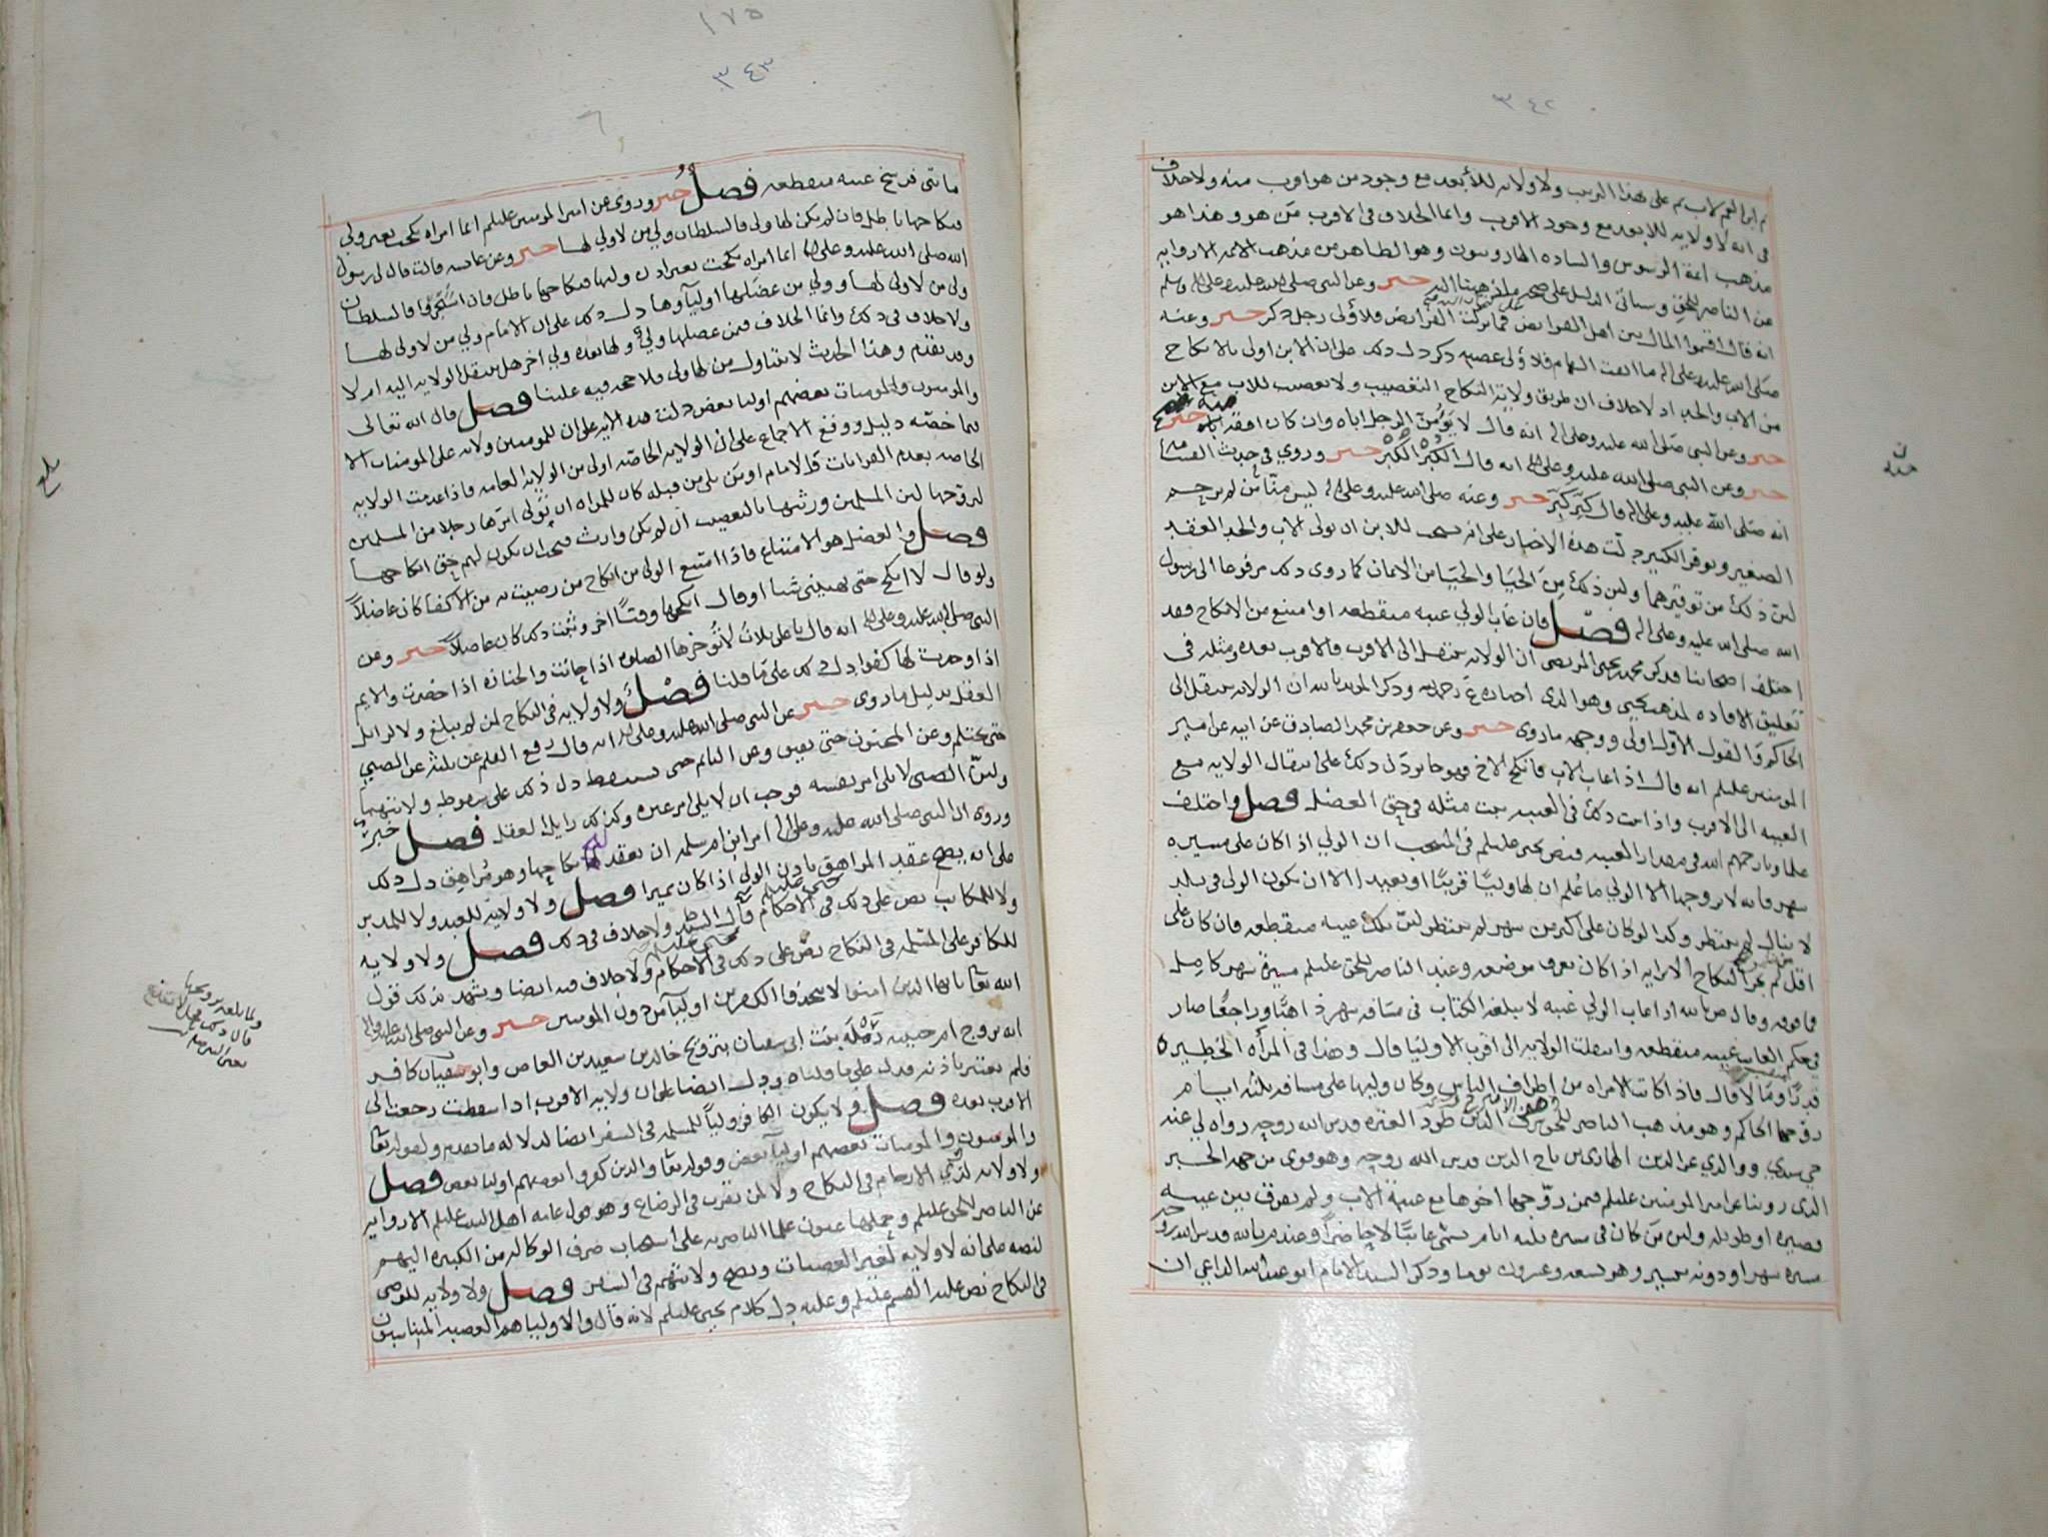 ٣٤٢
ثم ابن العم لاب ثم على هذا الترتيب ولا ولاية للأبعد مع وجود من هو اقرب منه ولا خلاف
في انه لا ولاية للابعد مع وجود الاقرب وانما الخلاف في الاقرب من هو وهذا هو
مذهب ائمة الرسوس والساده الهارونيون وهو الظاهر من مذهب الائمة الا رواية
عن الناصر للحق وسيأتي الدليل على صحة ما ذهبنا اليه خبر وعن النبي صلى الله عليه وعلى اله وسلم
انه قال اقسموا المال بين اهل الفرائض فما تركت الفرائض فلأولى رجل ذكر خبر وعنه
صلى الله عليه وعلى اله ما ابقت السهام فلأولى عصبه ذكر دل ذلك على ان الابن اولى بالانكاح
من الاب والجد اذ لا خلاف ان طريق ولاية النكاح التعصيب ولا تعصيب للاب مع الابن
خبر وعن النبي صلى الله عليه وعلى اله انه قال لا يؤمن الرجل اباه وان كان افقه منه
خبر وعن النبي صلى الله عليه وعلى اله انه قال الكبر الكبر خبر وروي في حديث القسامة
انه صلى الله عليه وعلى اله قال كبر كبر خبر وعنه صلى الله عليه وعلى اله ليس منا من لم يرحم
الصغير ويوقر الكبير دلت هذه الاخبار على انه يستحب للابن ان يولي الاب والجد العقد
لان ذلك من توقيرهما ولان ذلك من الحيا والحيا من الايمان كما روى ذلك مرفوعا الى رسول
الله صلى الله عليه وعلى اله فصل فان غاب الولي غيبه منقطعه او امتنع من الانكاح فقد
اختلف اصحابنا فذكر محمد بن يحيى المرتضى ان الولاية تنتقل الى الاقرب فالاقرب بعده ومثله في
تعليق الافاده لمذهب يحيى وهو الذي اختاره ع رحمه وذكر المويد بالله ان الولاية تنتقل الى
الحاكم والقول الاول اولى ووجهه ما روى خبر وعن جعفر بن محمد الصادق عن ابيه عن امير
المومنين عليلم انه قال اذا غاب الاب فانكح الاخ فهو جائز دل ذلك على انتقال الولاية مع
الغيبه الى الاقرب واذا ثبت ذلك في الغيبه ثبت مثله في حق العضل فصل واختلف
علماونا رحمهم الله في مقدار الغيبه فنص يحيى عليلم في المنتخب ان الولي اذا كان على مسيرة
شهر فانه لا يزوجها الا الولي ما علم ان لها وليا قريبا او بعيدا الا ان يكون الولي في بلد
لا ينال لم ينتظر وكذا لو كان على اكثر من شهر لم ينتظر لان تلك غيبه منقطعه فان كان على
اقل لم يجز النكاح الا برايه اذا كان يعرف موضعه وعند الناصر للحق عليلم مسيرة شهر كامل
فما فوقه وقال ص بالله اذا غاب الولي غيبه لا يبلغه الكتاب في مسافة شهر ذاهبا وراجعا صار
في حكم الغايب غيبه منقطعه وانتقلت الولاية الى اقرب الاوليا قال وهذا في المرأه الخطيره
قدرا ومالا قال فاذا كانت الامراه من اطراف الناس وكان وليها على مسافة ثلثة ايام
زوجها الحاكم وهو مذهب الناصر للحق شرف الدين طود العتره قدس الله روحه رواه لي عنه
حي سيدي ووالدي عز الدين الهادي بن تاج الدين قدس الله روحه وهو قوي من جهة الخبر
الذي روينا عن امير المومنين عليلم فيمن زوجها اخوها مع غيبة الاب ولم يفرق بين غيبه
قصيره او طويله ولان من كان في مسيرة ثلثة ايام يسمى غائبا لا حاضرا وعند م بالله قدس الله روحه
مسيرة شهر او دونه بيسير وهو تسعه وعشرون يوما وذكر السيد الامام ابو عبدالله الداعي ان
منه
١٧٥
٣٤٣
ما تتى فسخ غيبه منقطعه فصل خبر وروي عن امير المومنين عليلم ايما امراه نكحت بغير ولي
فنكاحها باطل فان لم يكن لها ولي فالسلطان ولي من لا ولي لها خبر وعن عائشه قالت قال لي رسول
الله صلى الله عليه وعلى اله ايما امراه نكحت بغير اذن وليها فنكاحها باطل فان اشتجروا فالسلطان
ولي من لا ولي لها وولي من عضلها اولياوها دل ذلك على ان الامام ولي من لا ولي لها
ولا خلاف في ذلك وانما الخلاف فيمن عضلها ولي ولها بعده ولي اخر هل تنتقل الولاية اليه ام لا
وقد تقدم وهذا الحديث لا يتناول من لها ولي فلا حجه فيه علينا فصل قال الله تعالى
والمومنون والمومنات بعضهم اوليا بعض دلت هذه الايه على ان للمومنين ولاية على المومنات الا
فيما خصه دليل ووقع الاجماع على ان الولاية الخاصه اولى من الولاية العامه فاذا عدمت الولاية
الخاصه بعدم القرابات ثم الامام او من يلي من قبله كان للمراه ان تولي امرها رجلا من المسلمين
ليزوجها لان المسلمين ورثتها بالتعصيب ان لم يكن وارث فيجب ان يكون لهم حق انكاحها
فصل والعضل هو الامتناع فاذا امتنع الولي من انكاح من رضيت به من الاكفا كان عاضلا
ولو قال لا انكح حتى تهبيني شيا او قال انكحها وقتا اخر وثبت ذلك كان عاضلا خبر وعن
النبي صلى الله عليه وعلى اله انه قال يا علي ثلاث لا تؤخرها الصلوه اذا جائت والجنازه اذا حضرت والايم
اذا وجدت لها كفوا دل ذلك على ما قلنا فصل ولا ولاية في النكاح لمن لم يبلغ ولا لزائل
العقل بدليل ما روى خبر عن النبي صلى الله عليه وعلى اله انه قال رفع القلم عن ثلثه عن الصبي
حتى يحتلم وعن المجنون حتى يفيق وعن النائم حتى يستيقظ دل ذلك على سقوط ولايتهما
ولان الصبي لا يلي امر نفسه فوجب ان لا يلي امر غيره وكذلك زايل العقل فصل خبر
وروي ان النبي صلى الله عليه وعلى اله امر ابن ام سلمه ان يعقد له نكاحها وهو مراهق دل ذلك
على انه يصح عقد المراهق باذن الولي اذا كان مميزا فصل ولا ولاية للعبد ولا للمدبر
ولا للمكاتب نص على ذلك في الاحكام قال السيد ولا خلاف في ذلك فصل ولا ولاية
للكافر على المسلمه في النكاح نص على ذلك في الاحكام ولا خلاف فيه ايضا ويشهد بذلك قول
الله تعا يا ايها الذين امنوا لا تتخذوا الكافرين اوليآ من دون المومنين خبر وعن النبي صلى الله عليه واله
انه تزوج ام حبيبه رمله بنت ابي سفيان بتزويج خالد بن سعيد بن العاص وابو سفيان كافر
فلم يعتبر باذنه فدل على ما قلناه ودل ايضا على ان ولاية الاقرب اذا سقطت رجعت الى
الاقرب بعده فصل ولا يكون الكافر وليا للمسلمه في السفر ايضا لدلالة ما تقدم ولقوله تعا
والمومنون والمومنات بعضهم اوليآ بعض وقوله تعا والذين كفروا بعضهم اوليا بعض فصل
ولا ولاية لذوي الارحام في النكاح ولا لمن تقرب في الرضاع وهو قول عامة اهل البيت عليلم الا رواية
عن الناصر للحق عليلم وحملها علما الناصريه على استحباب صرف الوكالة من الكبيره اليهم
لنصه على انه لا ولاية لغير العصبات ونص ولايتهم في السفر فصل ولا ولاية للوصي
في النكاح نص عليه القسم عليلم وعليه دل كلام يحيى عليلم لانه قال والاوليا هم العصبه المتناسبون
بلغ